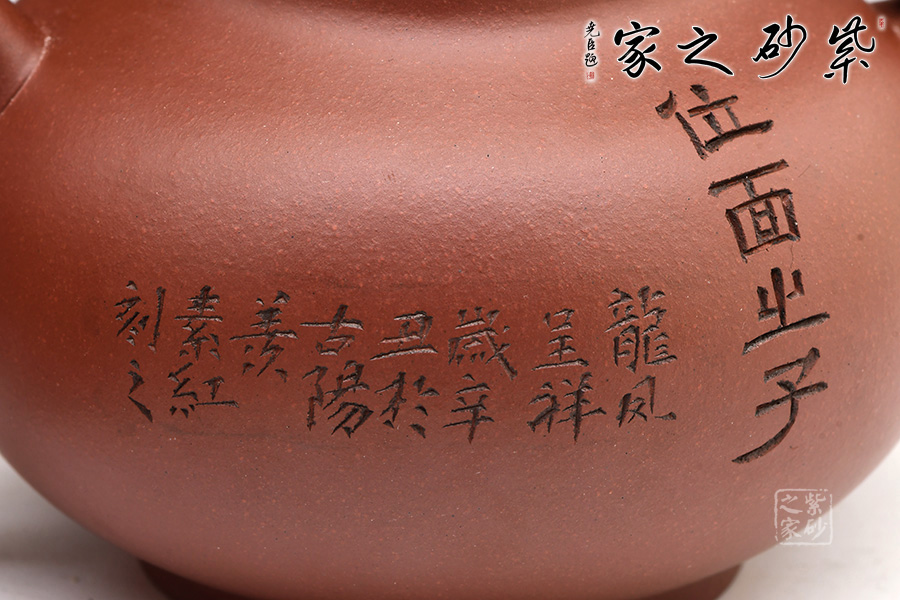 紫砂之家
位面之子
龍凤
呈祥
歲辛
丑於
古陽
羨
素紅
刻之
紫砂
之家